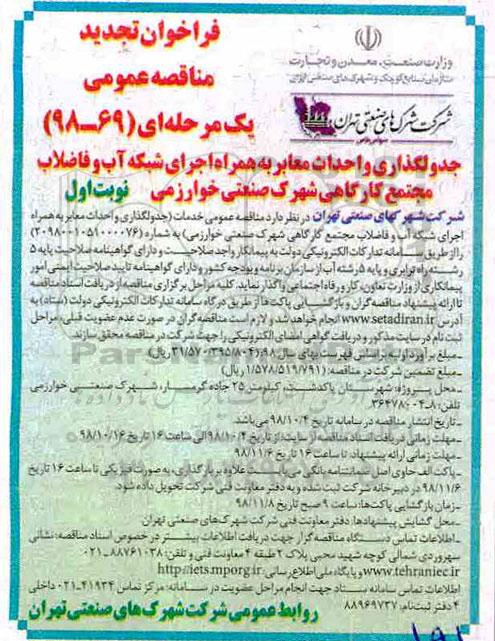 فراخوان تجدید
مناقصه عمومی
یک مرحله‌ای (۶۹-۹۸)
وزارت صنعت، معدن و تجارت
سازمان صنایع کوچک و شهرک‌های صنعتی ایران
شرکت شهرک‌های صنعتی تهران
جدولگذاری و احداث معابر به همراه اجرای شبکه آب و فاضلاب
مجتمع کارگاهی شهرک صنعتی خوارزمی نوبت اول
شرکت شهرکهای صنعتی تهران در نظر دارد مناقصه عمومی خدمات (جدولگذاری و احداث معابر به همراه
اجرای شبکه آب و فاضلاب مجتمع کارگاهی شهرک صنعتی خوارزمی) به شماره (۲۰۹۸۰۰۱۰۵۱۰۰۰۰۷۶)
را از طریق سامانه تدارکات الکترونیکی دولت به پیمانکار واجد صلاحیت و دارای گواهینامه صلاحیت پایه ۵
رشته راه ترابری و پایه ۵ رشته آب از سازمان برنامه و بودجه کشور و دارای گواهینامه تایید صلاحیت ایمنی امور
پیمانکاری از وزارت تعاون، کار و رفاه اجتماعی واگذار نماید. کلیه مراحل برگزاری مناقصه از دریافت اسناد مناقصه
تا ارائه پیشنهاد مناقصه‌گران و بازگشایی پاکت‌ها از طریق درگاه سامانه تدارکات الکترونیکی دولت (ستاد) به
آدرس www.setadiran.ir انجام خواهد شد و لازم است مناقصه‌گران در صورت عدم عضویت قبلی، مراحل
ثبت نام در سایت مذکور و دریافت گواهی امضای الکترونیکی را جهت شرکت در مناقصه محقق سازند.
-مبلغ برآورد اولیه براساس فهرست بهای سال ۹۸: (۳۱/۵۷۰/۳۹۵/۸۰۴ ریال)
-مبلغ تضمین شرکت در مناقصه: (۱/۵۷۸/۵۱۹/۷۹۱ ریال)
-محل پروژه: شهرستان پاکدشت، کیلومتر ۲۵ جاده گرمسار، شهرک صنعتی خوارزمی
تلفن: ۸-۳۶۴۷۸۰۰۴
-تاریخ انتشار مناقصه در سامانه تاریخ ۹۸/۱۰/۴ می‌باشد.
-مهلت زمانی دریافت اسناد مناقصه از سایت: از تاریخ ۹۸/۱۰/۴ الی ساعت ۱۶ تاریخ ۹۸/۱۰/۱۶
-مهلت زمانی ارائه پیشنهاد: تا ساعت ۱۶ تاریخ ۹۸/۱۱/۶
-پاکت الف حاوی اصل ضمانتنامه بانکی می‌بایست علاوه بر بارگذاری، به صورت فیزیکی تا ساعت ۱۶ تاریخ
۹۸/۱۱/۶ در دبیرخانه شرکت ثبت شده و به دفتر معاونت فنی شرکت تحویل داده شود.
-زمان بازگشایی پاکت‌ها: ساعت ۹ صبح تاریخ ۹۸/۱۱/۸
-محل گشایش پیشنهادها: دفتر معاونت فنی شرکت شهرک‌های صنعتی تهران
-اطلاعات تماس دستگاه مناقصه گزار جهت دریافت اطلاعات بیشتر در خصوص اسناد مناقصه: نشانی
سهروردی شمالی کوچه شهید محبی پلاک ۲ طبقه ۴ معاونت فنی و تلفن: ۸۸۷۶۱۰۳۸-۰۲۱
www.tehraniec.ir و پایگاه ملی اطلاع رسانی: http://iets.mporg.ir
اطلاعات تماس سامانه ستاد جهت انجام مراحل عضویت در سامانه: مرکز تماس ۴۱۹۳۴-۰۲۱ داخلی
۴ دفتر ثبت‌نام: ۸۸۹۶۹۷۳۷
روابط عمومی شرکت شهرک‌های صنعتی تهران